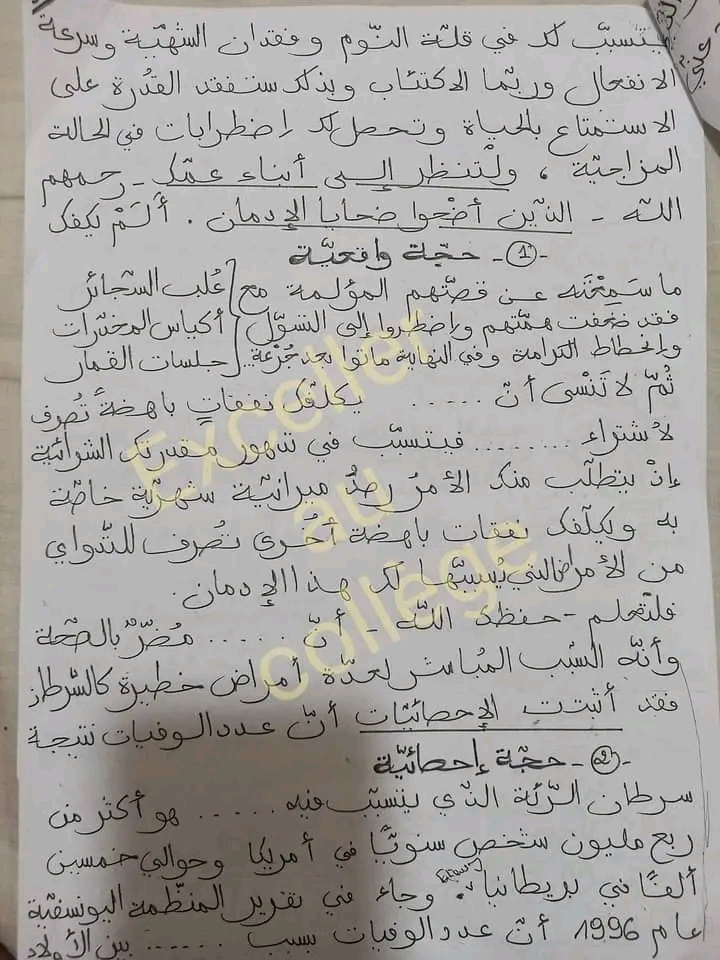 يتسبّب لك في قلّة النّوم وفقدان الشهيّة وسرعة
الانفعال وربّما الاكتئاب وبذلك ستفقد القدرة على
الاستمتاع بالحياة وتحصل لك اضطرابات في الحالة
المزاجيّة ، ولتنظر إلى أبناء عمّك - رحمهم
الله - الذين أضحوا ضحايا الإدمان . ألم يكفك
-①- حجّة واقعيّة
ما سمعته عن قصّتهم المؤلمة مع
علب السجائر
فقد ضعفت همّتهم واضطروا إلى التسوّل
أكياس المخدّرات
وانحطاط الكرامة وفي النهاية ماتوا بعد جُرْعة
جلسات القمار
ثمّ لا تَنْسى أنّ ...... يكلّفك نفقاتٍ باهضةً تُصرف
لاشتراء ........ فيتسبّب في تدهور مقدرتك الشرائية
إنْ يتطلّب منك الأمرُ رصدُ ميزانيّة شهريّة خاصّة
به ويكلّفك نفقات باهضة أخرى تُصرف للتّداوي
من الأمراض التي يُسببّها لك هذا الإدمان.
فلتعلم - حفظك الله - أنّ ...... مُضّرٌ بالصّحة
وأنّه السّبب المُباشر لعدّة أمراض خطيرة كالسّرطان
فقد أثبتت الإحصائيّات أنّ عدد الوفيات نتيجة
-②- حجّة إحصائيّة
سرطان الرّئة الذي يتسبّب فيه ..... هو أكثر من
ربع مليون شخص سنويّا في أمريكا وحوالي خمسين
ألفًا في بريطانيا . وجاء في تقرير المنظّمة اليونسفيّة
عام 1996 أنّ عدد الوفيات بسبب ...... بين الأولاد
Exceller
au
collège